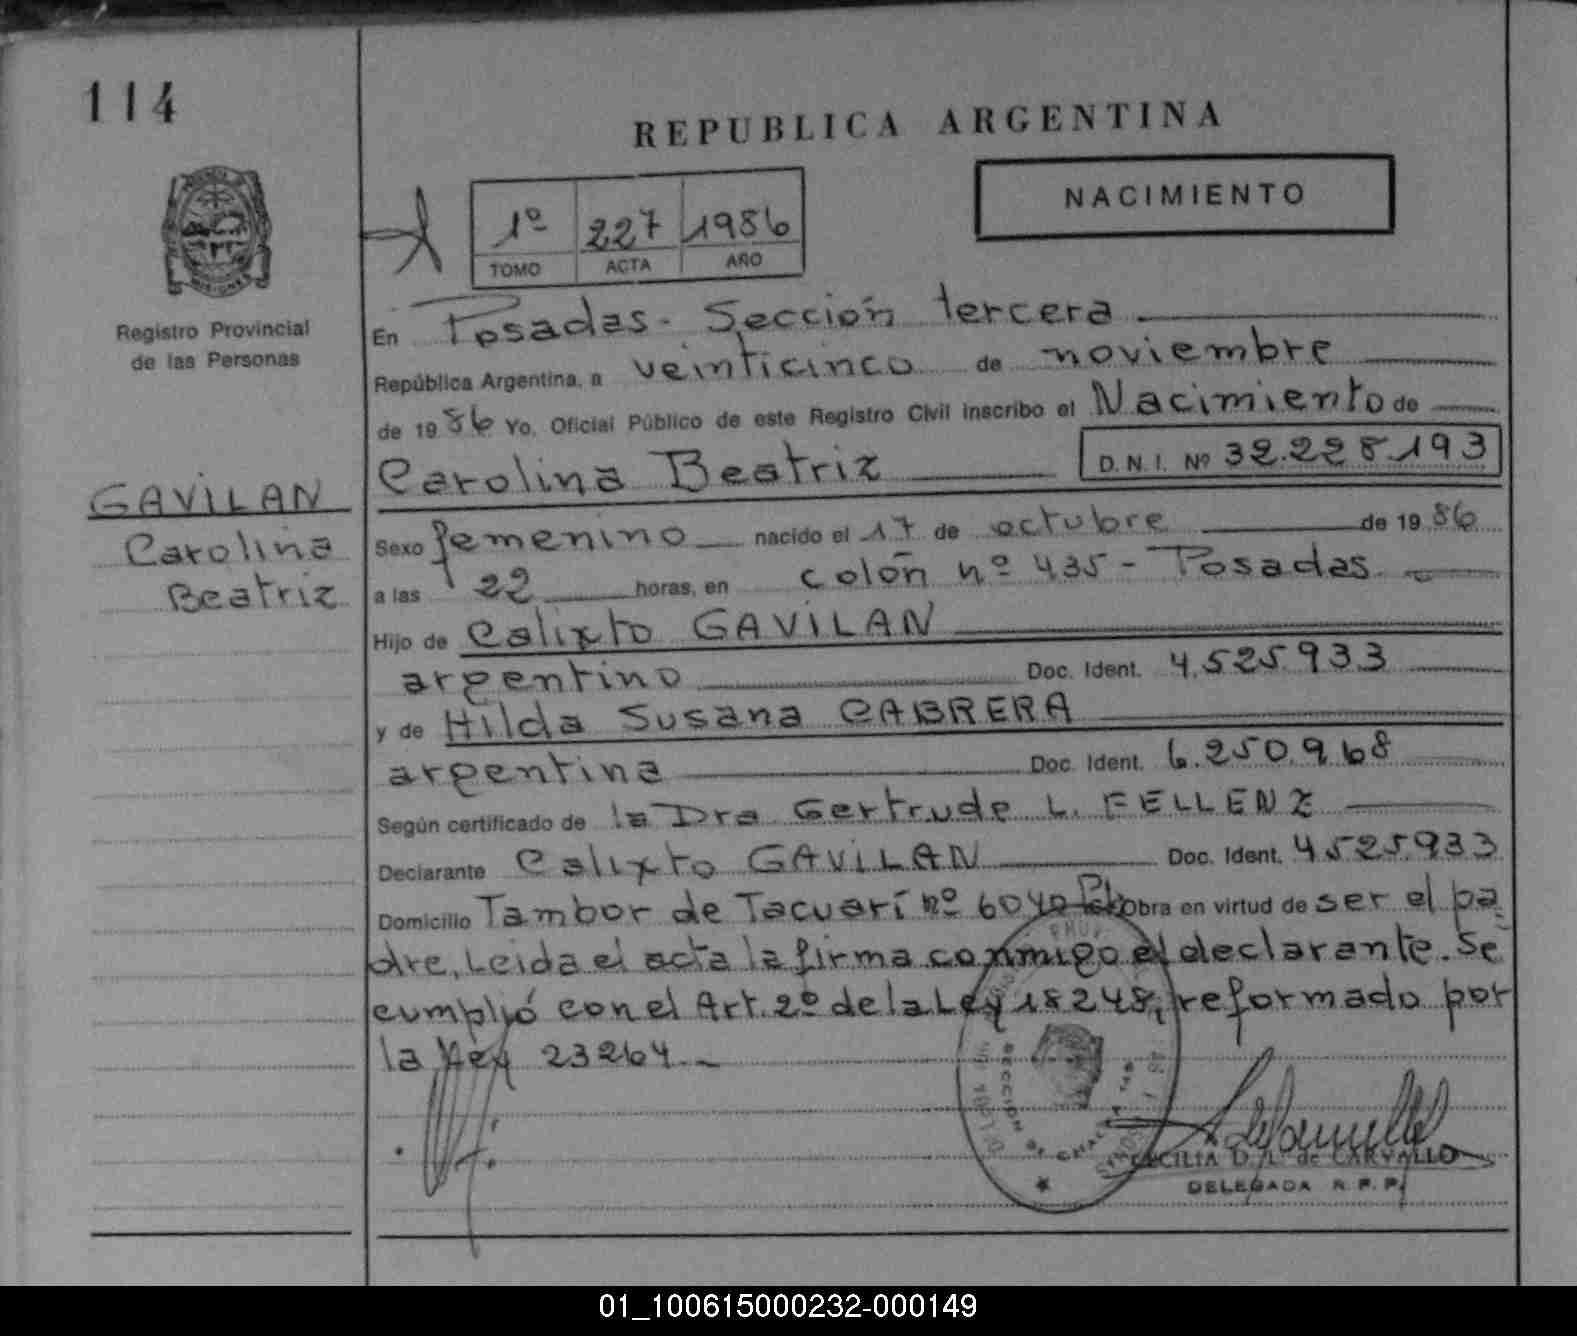 114
REPUBLICA ARGENTINA
NACIMIENTO
1º 227 1986
TOMO ACTA AÑO
MISIONES
Registro Provincial
de las Personas
GAVILAN
Carolina
Beatriz
En Posadas - Sección tercera
República Argentina, a veinticinco de noviembre
de 1986 Yo, Oficial Público de este Registro Civil inscribo el Nacimiento de
Carolina Beatriz D. N. I. Nº 32.228.193
Sexo femenino nacido el 17 de octubre de 1986
a las 22 horas, en colón nº 435 - Posadas
Hijo de Calixto GAVILAN
argentino Doc. Ident. 4.525.933
y de Hilda Susana CABRERA
argentina Doc. Ident. 6.250.968
Según certificado de la Dra Gertrude L. FELLENZ
Declarante Calixto GAVILAN Doc. Ident. 4525.933
Domicilio Tambor de Tacuarí nº 6040 Obra en virtud de ser el pa
dre. Leida el acta la firma conmigo el declarante. Se
cumplió con el Art. 2º de la Ley 18248, reformado por
la Ley 23264.-
SECCION
CECILIA D. L. de CARVALLO
DELEGADA R. P. P.
01_100615000232-000149